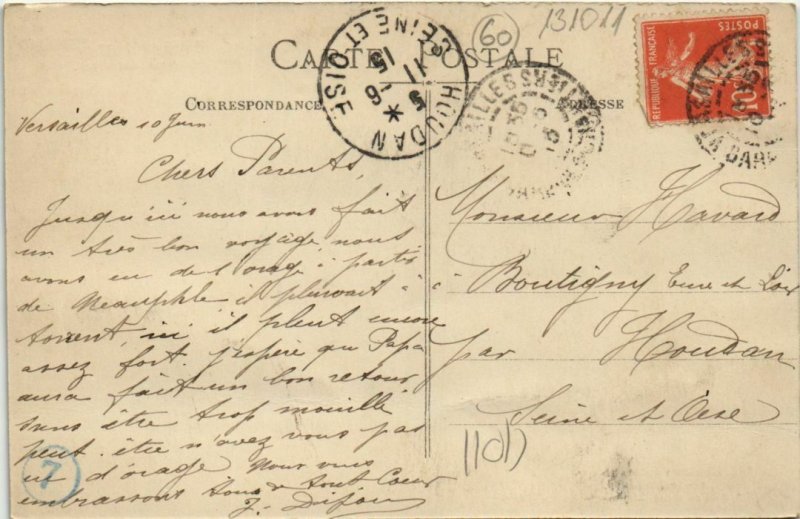 131011
60
CARTE POSTALE
CORRESPONDANCE
ADRESSE
HOUDAN
SEINE ET OISE
POSTES
REPUBLIQUE FRANÇAISE
10
Versailles 10 Juin
Chers Parents,
Jusqu'ici nous avons fait
un très bon voyage, nous
avons eu de l'orage à partir
de Neauphle il pleuvait à
torrent, ici il pleut encore
assez fort. J'espère que Papa
aura fait un bon retour
sans être trop mouillé
peut-être n'avez vous pas
eu d'orage Nous vous
embrassons tous de tout Coeur
Monsieur Havard
à Boutigny Eure et Loir
par Houdan
Seine et Oise
7